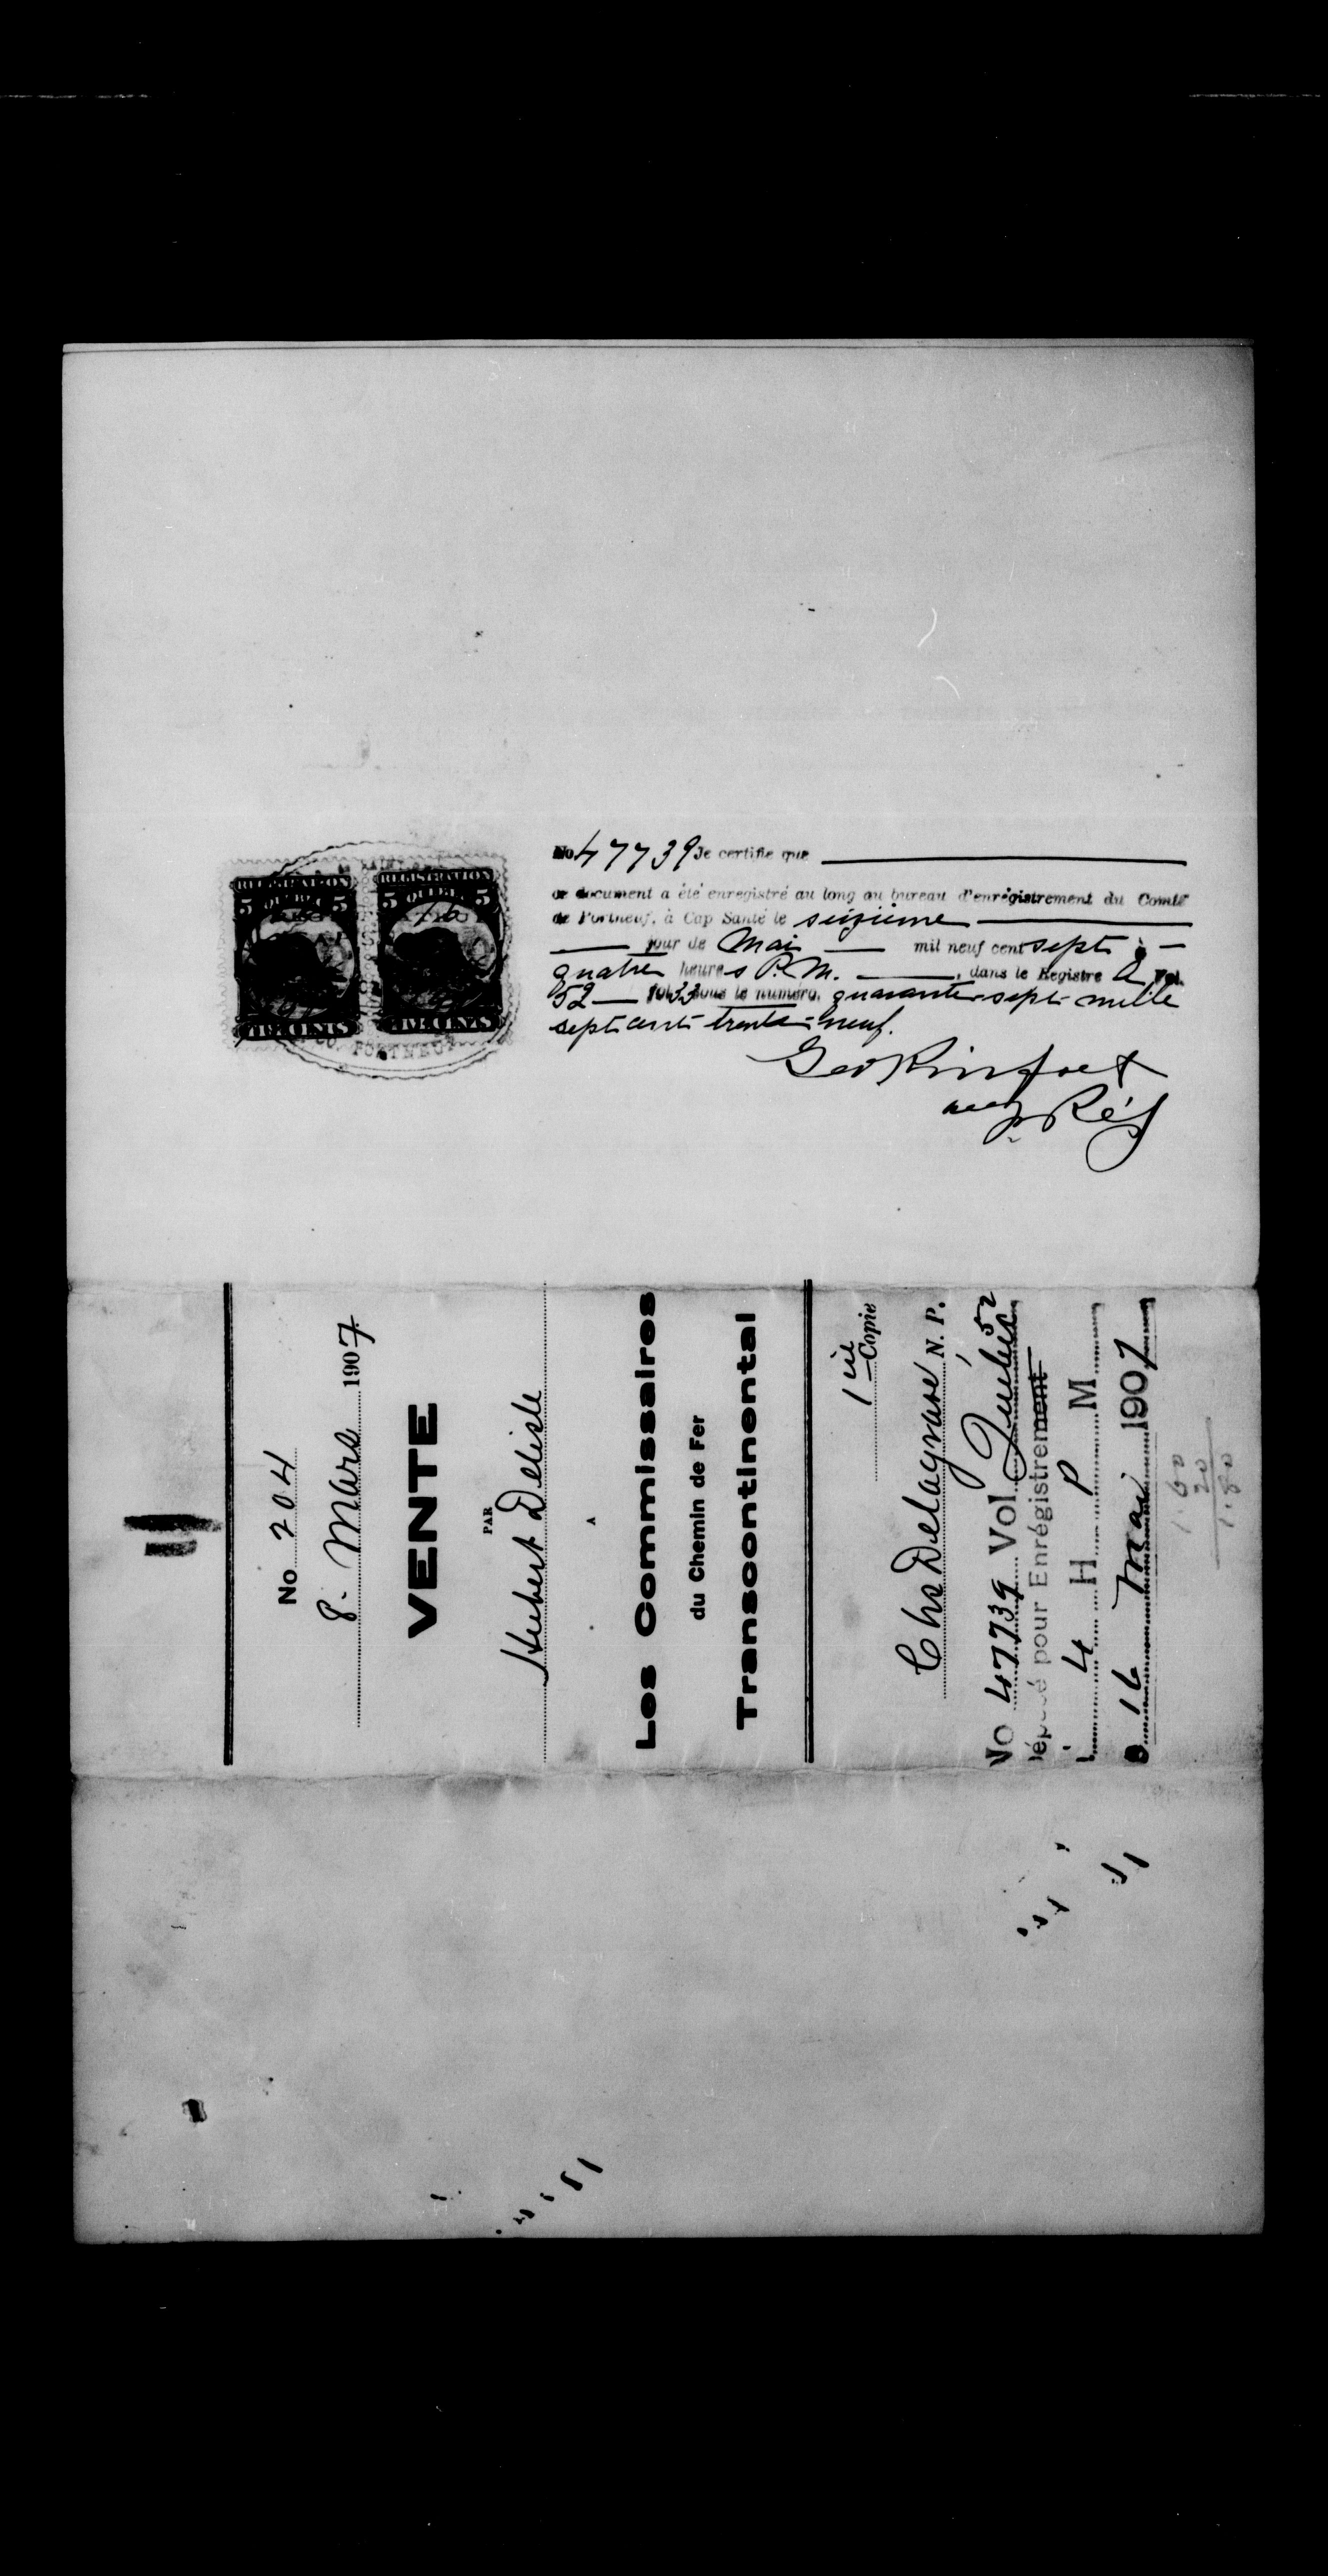 REGISTRATION REGISTRATION
5 QUEBEC 5 5 QUEBEC 5
FIVE CENTS FIVE CENTS
PORTNEUF
No 47739 Je certifie que
ce document a été enregistré au long au bureau d'enrégistrement du Comté
de Portneuf, à Cap Santé le seizième
jour de Mai mil neuf cent sept à
quatre heures P.M. , dans le Registre A Vol.
52 fol 33 sous le numéro, quarante-sept mille
sept cent trente-neuf.
Geo Rinfret
Rég
No 204
8. Mars 1907
VENTE
PAR
Hubert Delisle
A
Les Commissaires
du Chemin de Fer
Transcontinental
1ère Copie
Chs Delagrave, N. P.
Québec
No 47739 Vol 52
Déposé pour Enrégistrement
4 H P M
16 Mai 1907
1.60
20
1.80